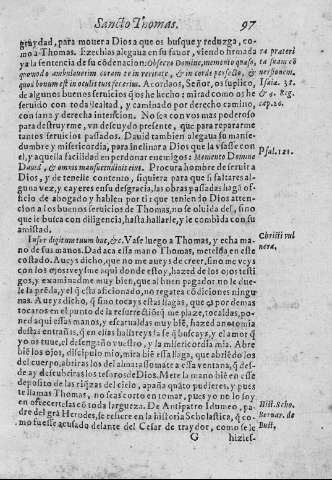 Sancto Thomas. 97
grauydad, para mouer a Dios a que os busque y reduzga, co-
mo a Thomas. Ezechias alegaua en su fauor, viendo firmada
ya la sentencia de su cōdenacion: Obsecro Domine, memento quæso,
quomodo ambulauerim coram te in veritate, & in corde perfecto, &
quod bonum est in oculis tuis fecerim. Acordaos, Señor, os suplico,
de algunos buenos seruicios q̄ os he hecho: mirad como os he
seruido con toda lealtad, y caminado por derecho camino,
con sana y derecha intencion. No sea con vos mas poderoso
para destruyrme, vn descuydo presente, que para repararme
tantos seruicios passados. Dauid tambien alegaua su manse-
dumbre y misericordia, para inclinar a Dios que la vsasse con
el, y aquella facilidad en perdonar enemigos: Memento Domine
Dauid, & omnis mansuetudinis eius. Procura hombre de seruir a
Dios, y de tenerle contento, siquiera para que si faltares al-
guna vez, y cayeres en su desgracia, las obras passadas hagā of-
ficio de abogado y hablen por ti: que teniendo Dios atten-
cion a los buenos seruicios de Thomas, no se oluida del, sino
que le busca con diligencia, hasta hallarle, y le combida con su
amistad.
Infer digitum tuum huc, &c. Vase luego a Thomas, y echa ma-
no de sus manos. Dad aca essa mano Thomas, metelda en este
costado. Aueys dicho, que no me aueys de creer, sino me veys
con los ojos: veysme aqui donde estoy, hazed de los ojos testi-
gos, y examinadme muy bien, que al buen pagador no le due-
le la prēda, y el q̄ està aficionado, no regatea cōdiciones ningu-
nas. Aueys dicho, q̄ sino tocays estas llagas, que
tocaros en el punto de la resurrectiō me plaze, tocaldas, po-
ned aqui essas manos, y escarualdas muy biē, hazed anotomia
destas entrañas, q̄ en ellas hallareys la fe q̄ buscays, y el amor q̄
yo os tuue, el desengaño vuestro, y la misericordia mia. Abre
biē los ojos, discipulo mio, mira biē essa llaga, que
del cuerpo, abriras los del alma: assomate a essa ventana, q̄ des-
de ay descubriras los tesoros de Dios. Mete la mano biē en esse
deposito de las riq̄zas del cielo, apaña quāto pudieres, y pues
te llamas Thomas, no seas corto en tomar, pues yo no lo soy
en offrecertelas cō toda largueza. De Antipatro Idumeo, pa-
dre del grā Herodes, se refiere en la historia Scholastica, q̄ co-
mo fuesse acusado delante del Cesar de traydor, como se le
G hizies-
ta præterita
Isaiæ. 38.
& 4. Reg.
cap. 20.
Psal. 131.
Christi vul
nera.
Hist. Scho.